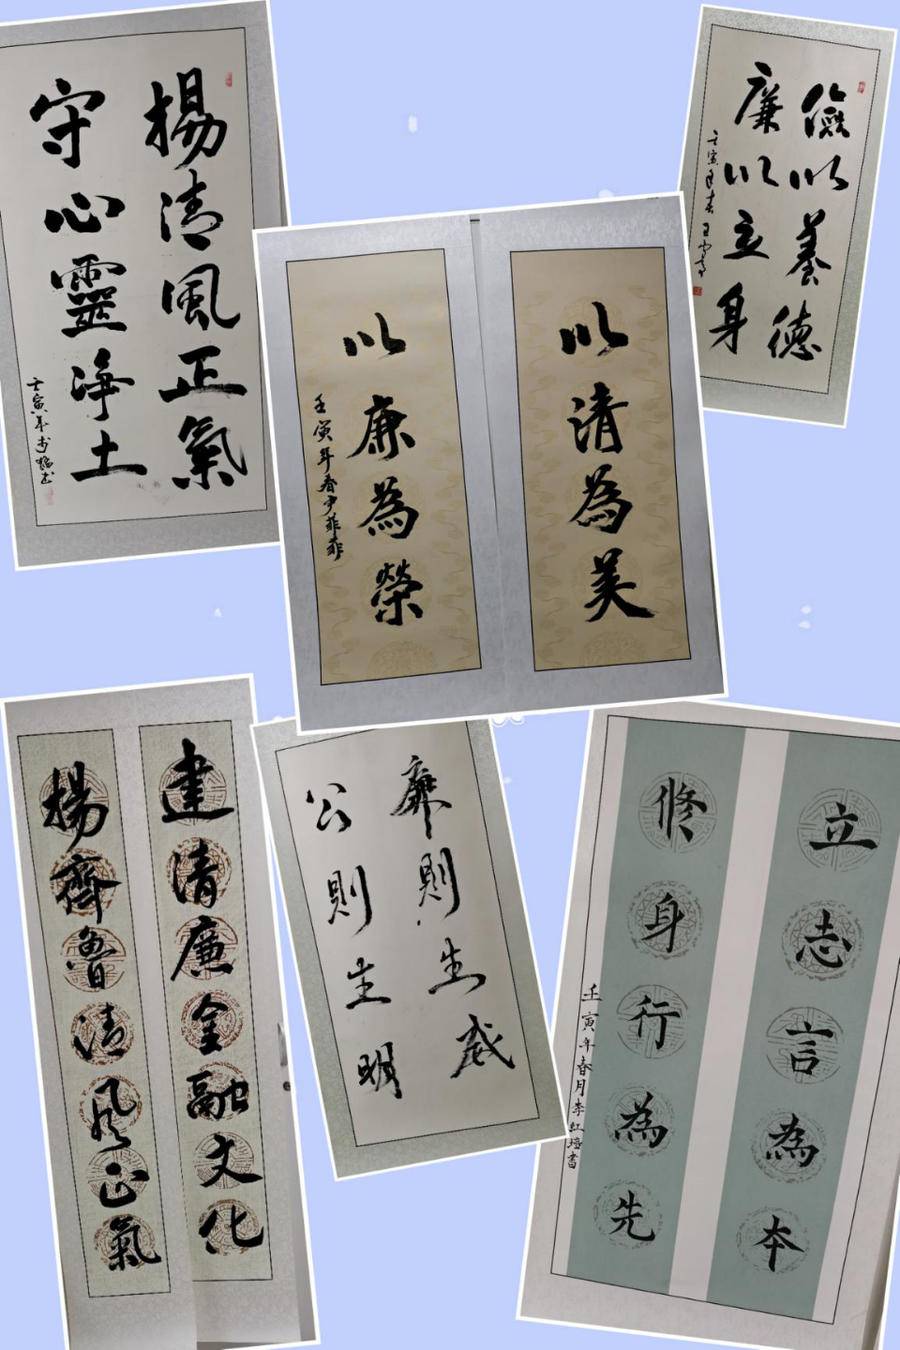 揚清風正氣
守心靈淨土
壬寅年
儉以養德
廉以立身
壬寅年春
以清為美
以廉為榮
壬寅年春尹菲菲
建清廉金融文化
揚齊魯清风正氣
廉則生威
公則生明
立志言為本
修身行為先
壬寅年春月李紅培書